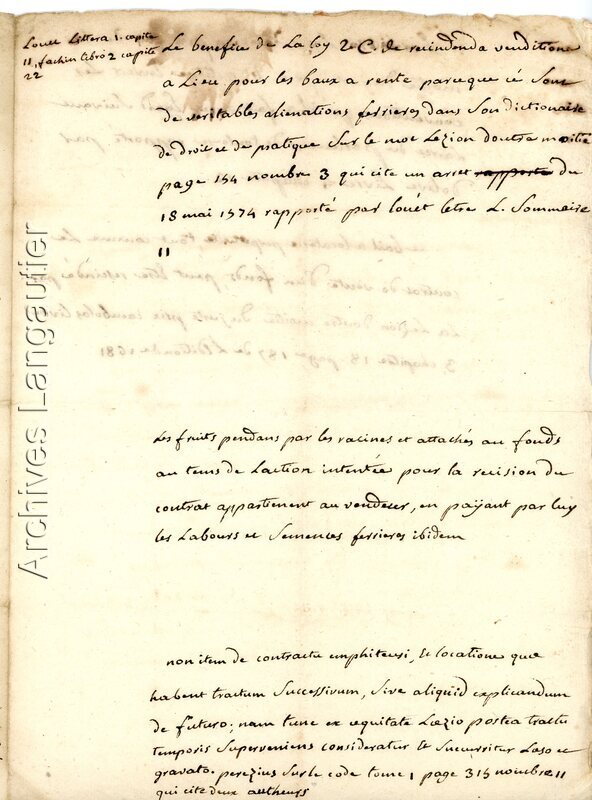 Louet Littera l. capite
11, fachin libro 2 capite
22
Le benefice de La loy 2 C. de recindenda venditione
a Lieu pour les baux a rente parceque cé Sont
de veritables alienations ferrieres dans Son dictionaire
de droit et de pratique Sur le mot Lezion doutre moitié
page 154 nombre 3 qui cite un arret rapporté du
18 mai 1574 rapporté par louét letre L. Sommaire
11
Les fruits pendans par les racines et attachés au fonds
au tems de Laction intentée pour la recision du
contrat appartienent au vendeur, en payant par luy
les Labours et Semences ferrieres ibidem
non item de contractu emphiteusi, et locatione quae
habent tractum Successivum, Sive aliquid explicandum
de futuro; nam tunc ex equitate Laezio postea tractu
temporis Superveniens consideratur et Sucurritur Laso et
gravato. perezius Sur le code tome 1 page 315 nombre 11
qui cite deux autheurs
Archives Langautier